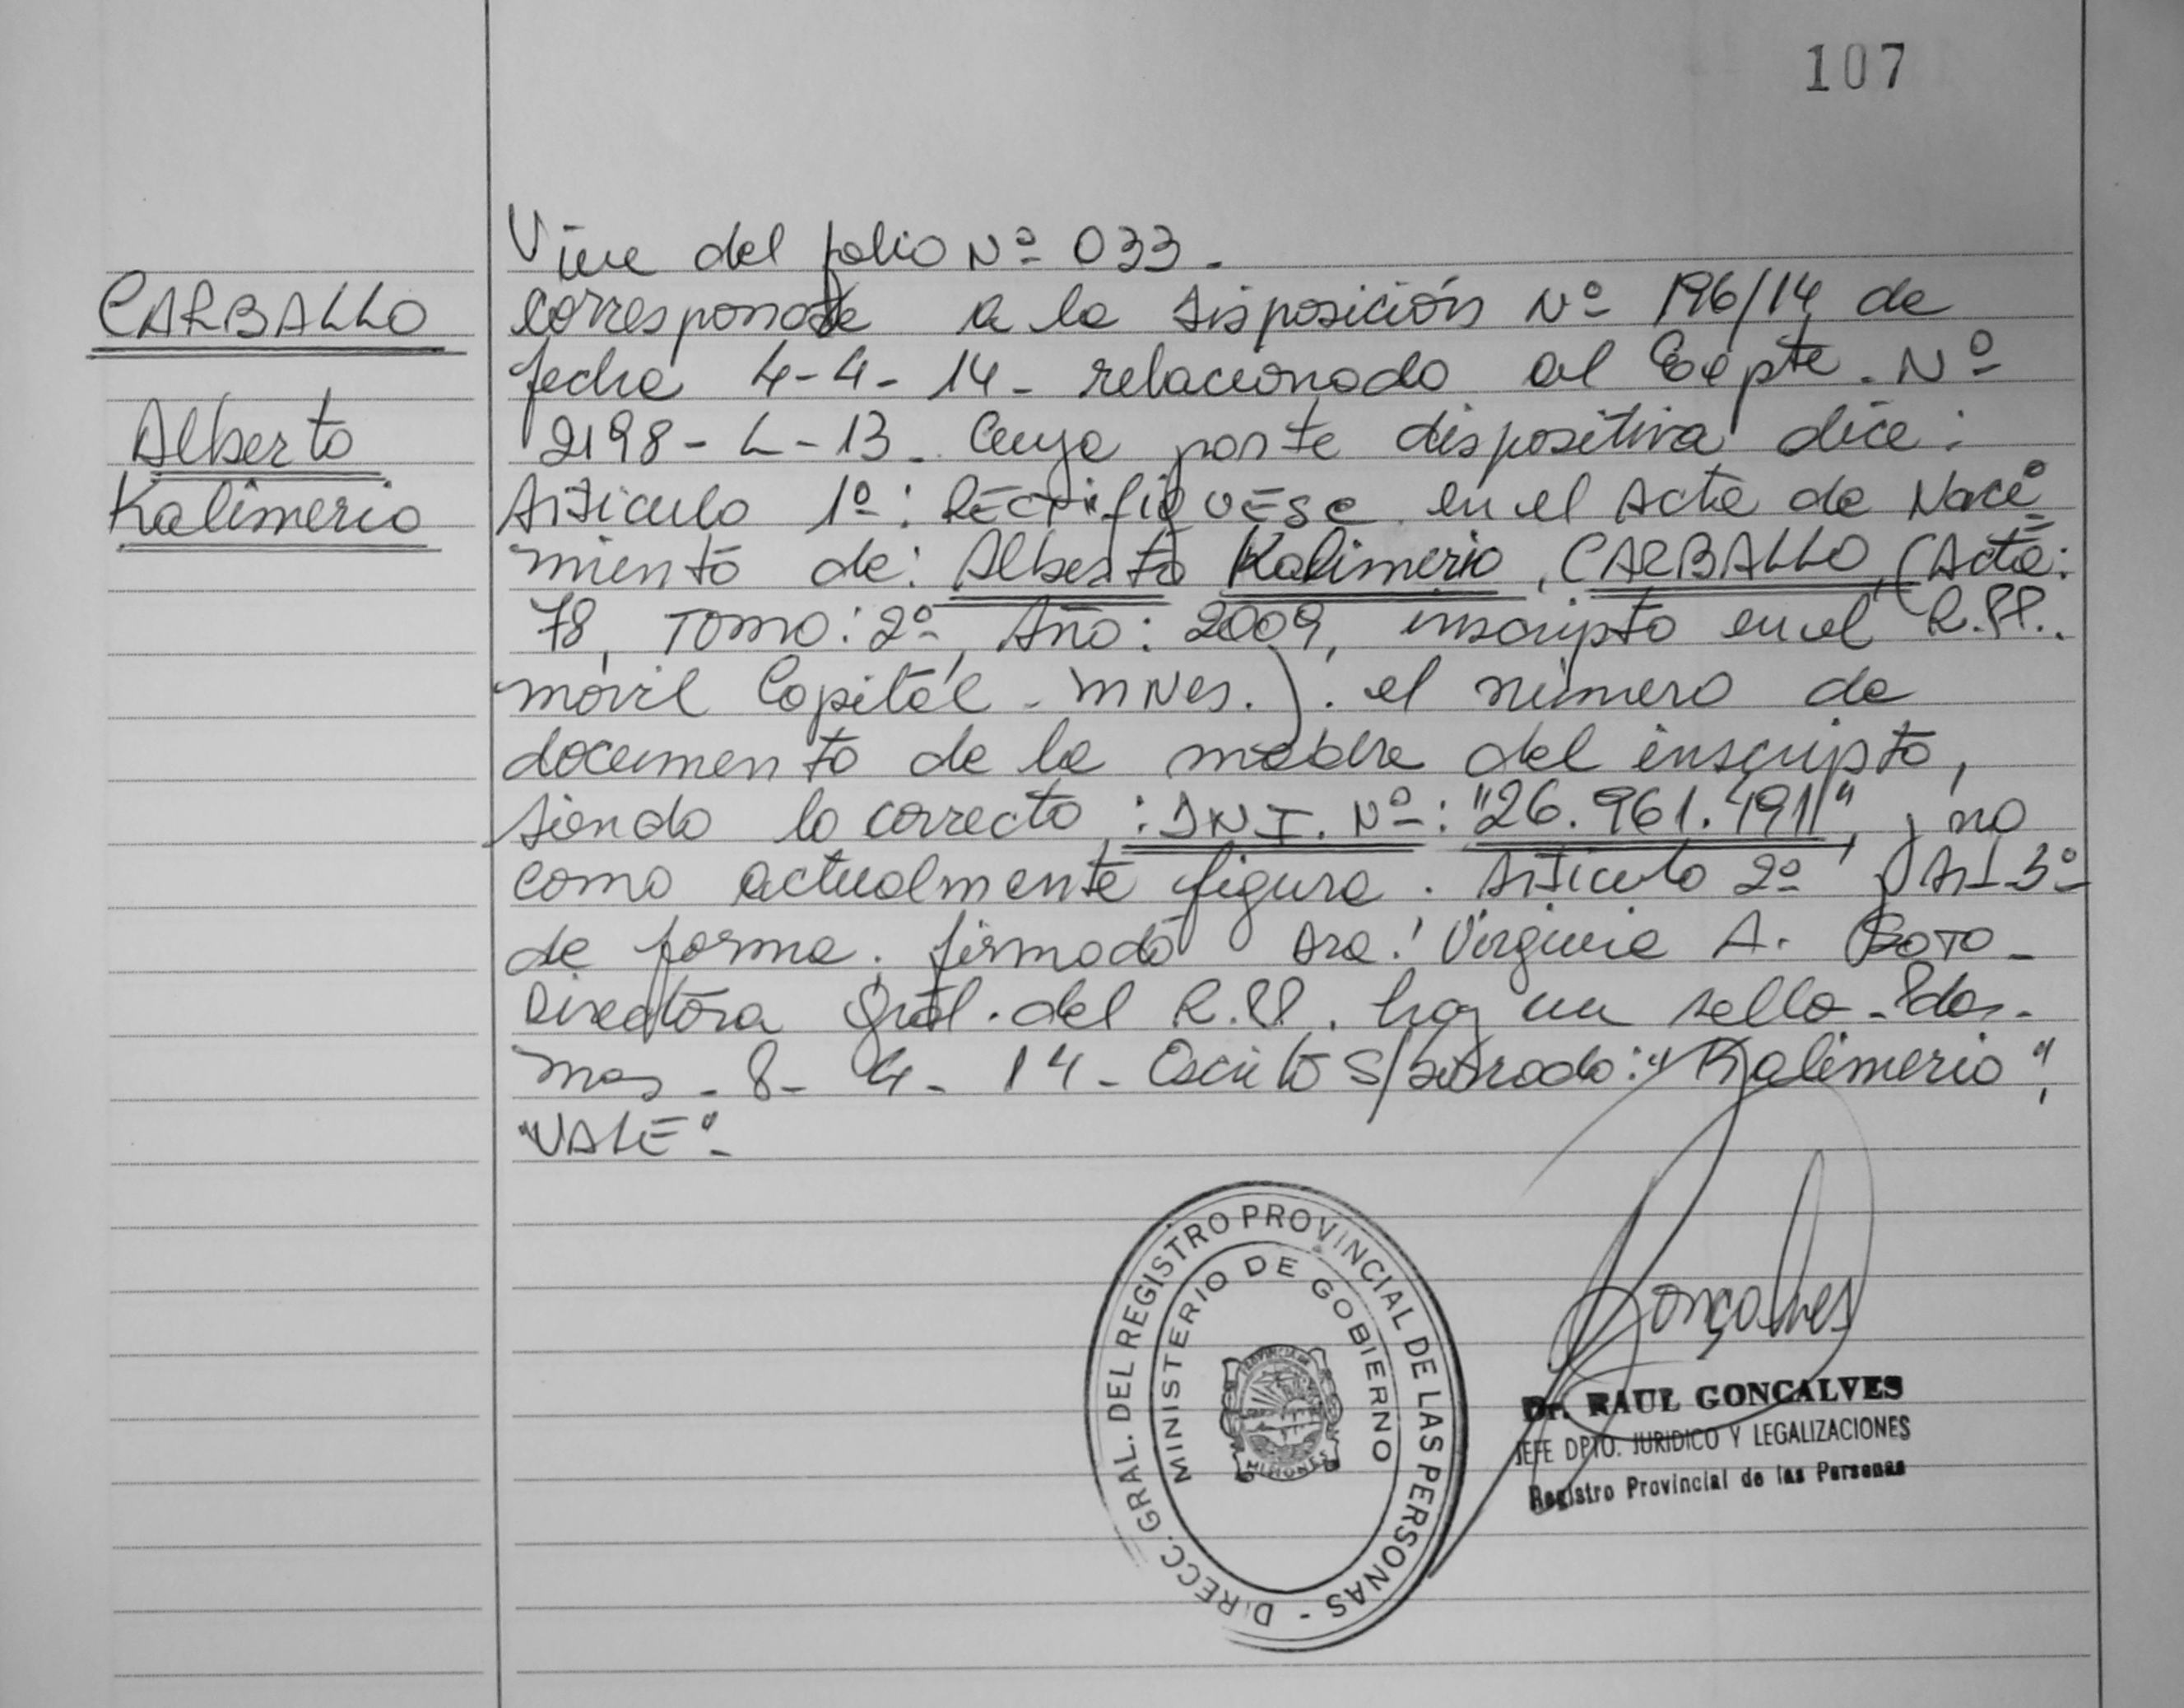 107
CARBALLO
Alberto
Kalimerio
Viene del folio Nº 033.
corresponde a la Disposición Nº 196/14 de
fecha 4-4-14- relacionado al Expte. Nº
2198-L-13. Cuya parte dispositiva dice:
Artículo 1º: RECTIFIQUESE en el Acta de Naci
miento de: Alberto Kalimerio, CARBALLO (Acta:
78, Tomo: 2º, Año: 2009, inscripto en el R.PP..
móvil Capital - Mnes.). el número de
documento de la madre del inscripto,
siendo lo correcto: D.N.I. Nº: "26.961.491", y no
como actualmente figura. Artículo 2º y Art 3º
de forma. firmado Dra. Virginia A. Soto -
Directora Gral. del R.PP. hay un sello - Pdas.
Mnes - 8-4-14- Escrito S/borrado: "Kalimerio",
"VALE".-
DIRECC. GRAL. DEL REGISTRO PROVINCIAL DE LAS PERSONAS -
MINISTERIO DE GOBIERNO
PROVINCIA DE
MISIONES
Gonçalves
Dr. RAUL GONCALVES
JEFE DPTO. JURIDICO Y LEGALIZACIONES
Registro Provincial de las Personas